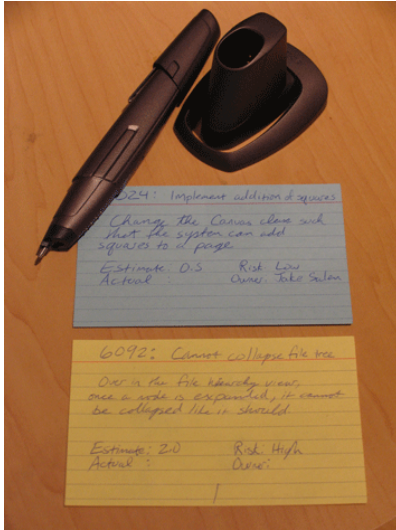 024: Implement addition of squares
Change the Canvas class such
that the system can add
squares to a page
Estimate: 0.5 Risk: Low
Actual : Owner: Jako Salan
6092: Cannot collapse file tree
Over in the file hierarchy view,
once a node is expanded, it cannot
be collapsed like it should.
Estimate: 2.0 Risk: High
Actual : Owner: